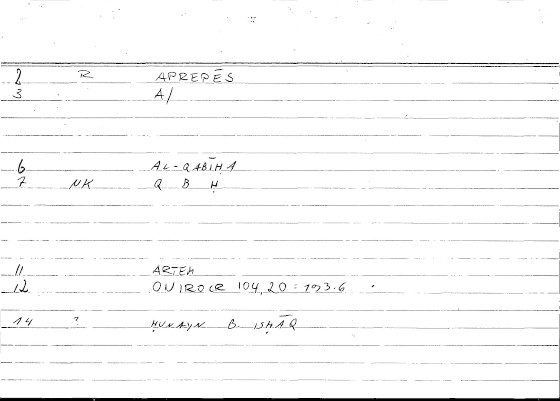 2 R APREPĒS
3 A/
6 AL-QABĪḤA
7 NK Q B Ḥ
11 ARTEM
12 OVIROCR 104,20 = 193.6
14 ? ḤUNAYN B. ISḤĀQ